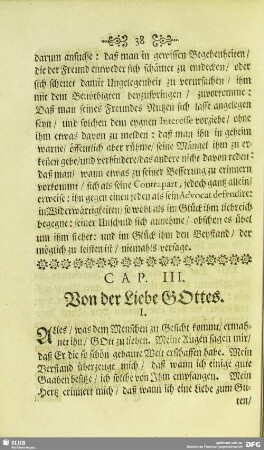 38
darum ansuche: daß man in gewissen Begebenheiten/
die der Freund entweder sich schämet zu entdecken/ oder
sich scheuet damit Ungelegenheit zu verursachen/ ihm
mit dem Benöthigten beyzuspringen/ zuvorkomme:
Daß man seines Freundes Nutzen sich lasse angelegen
seyn/ und solchen dem eygnen Interesse vorziehe/ ohne
ihm etwas davon zu melden: daß man ihn in geheim
warne/ öffentlich aber rühme/ seine Mängel ihm zu er-
kennen gebe/und verhindere/das andere nicht davon reden:
daß man/ wann etwas zu seiner Besserung zu erinnern
vorkommt/ sich als seine Contrapart, jedoch gantz allein/
erweise: ihn gegen einen jeden als sein Advocat defendire:
in Widerwärtigkeiten/ so wohl als im Glück ihm liebreich
begegne: seiner Unschuld sich annehme/ obschen es übel
um ihn stehet: und im Glück ihm den Beystand/ der
möglich zu leisten ist/ niemahls versage.
CAP. III.
Von der Liebe GOttes.
I.
Alles/ was dem Menschen zu Gesicht kommt/ ermah-
net ihn/ GOtt zu lieben. Meine Augen sagen mir/
daß Er die so schön gebaute Welt erschaffen habe. Mein
Verstand überzeuge mich/ daß wann ich einige gute
Gaaben besitze/ ich solche von Ihm empfangen. Mein
Hertz erinnert mich/ daß wann ich eine Liebe zum Gu-
ten/
SLUB
Wir führen Wissen.